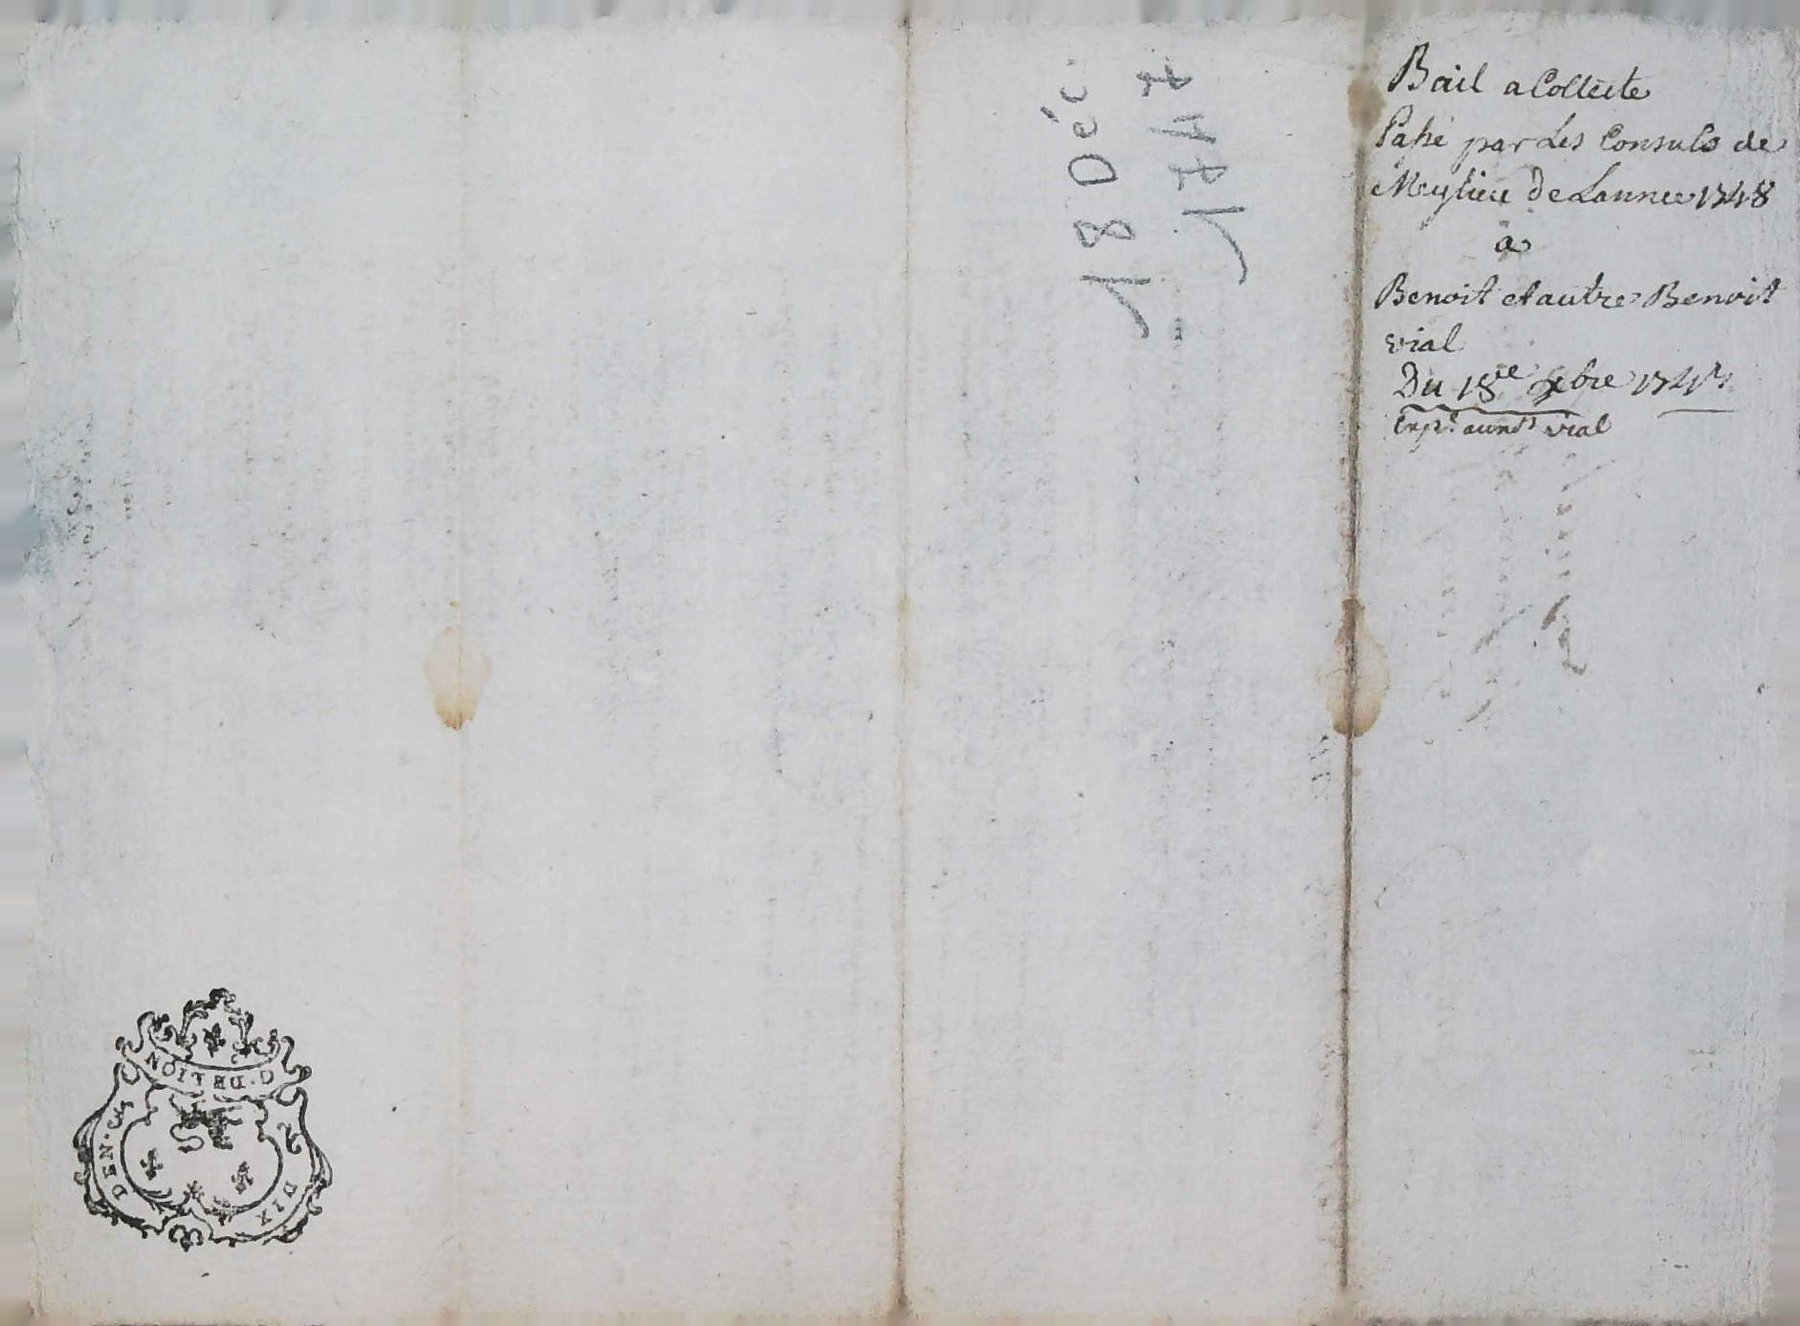 Bail a Collecte
Passé par Les Consuls de
Meylieu de Lannee 1748
a
Benoit et autre Benoit
vial
Du 18ee xbre 1747
Exp. aund vial
18 Déc.
1747
G. DE LION
DIX
DEN.